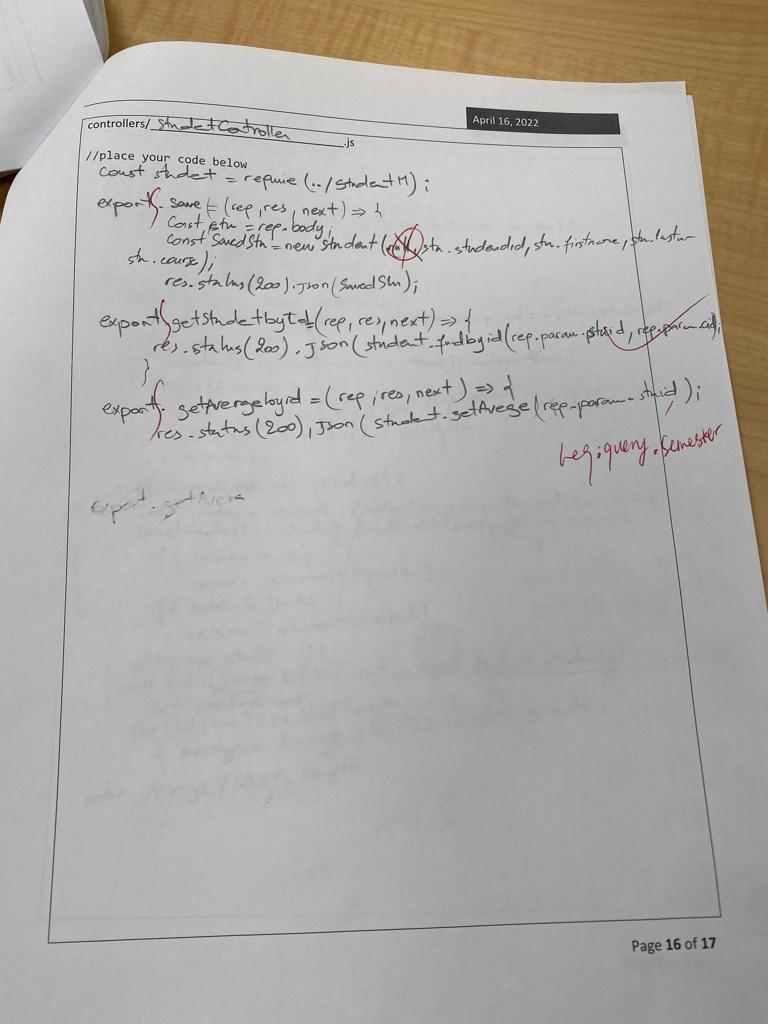 April 16, 2022
controllers/ StudetCotroller .js
//place your code below
Const studet = requie (../StudentM) ;
exports. save = (rep, res, next) => {
Const stn = rep.body;
const SavedStn = new Student (null, stn.studendid, stn.firstnone, stn.lastn
stn.course);
res.status(200).json(SavedStn);
exports getStudetbyId=(rep, res, next) => {
res.status(200).Json(student.findbyid(rep.param.stnid, rep.param.cid);
}
exports. getAvergebyid = (rep, res, next) => {
res.status(200), Json( student.getAverge(rep.param.stnid);
, req.query.semester
export. getAvera
Page 16 of 17